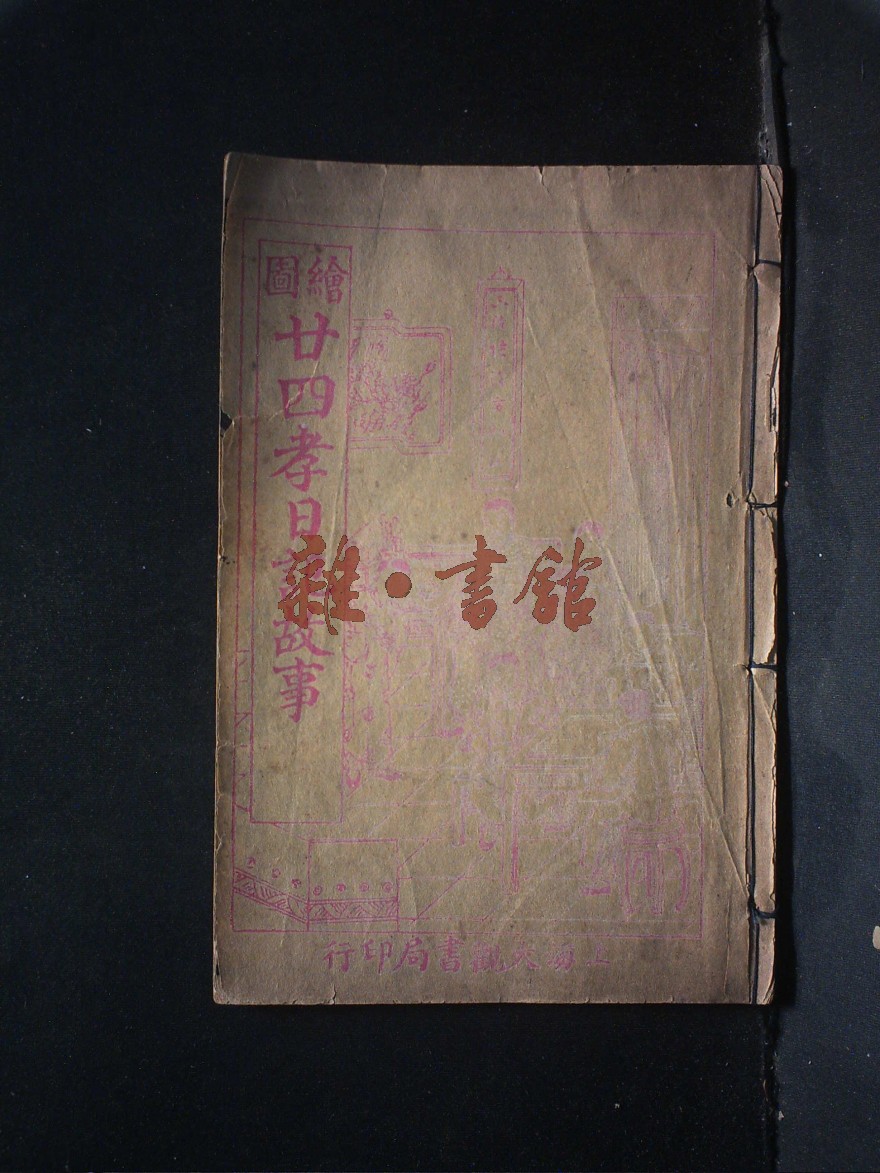 繪圖
廿四孝日記故事
雜·書館
上海大觀書局印行